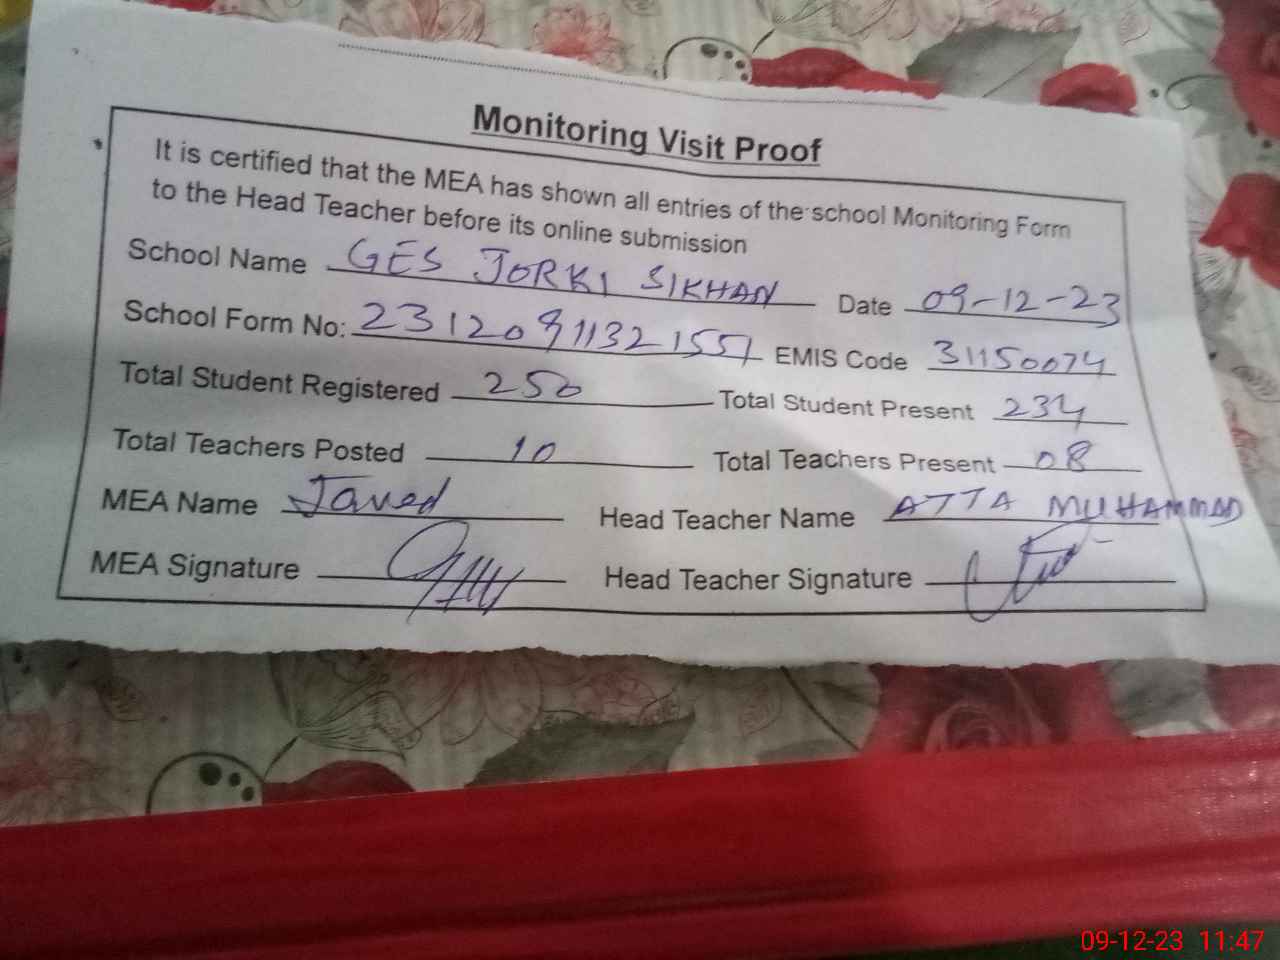 Monitoring Visit Proof
It is certified that the MEA has shown all entries of the school Monitoring Form
to the Head Teacher before its online submission
School Name GES JORKI SIKHAN Date 09-12-23
School Form No: 23120911321551 EMIS Code 31150074
Total Student Registered 250 Total Student Present 234
Total Teachers Posted 10 Total Teachers Present 08
MEA Name Javed Head Teacher Name ATTA MUHAMMAD
MEA Signature Head Teacher Signature
09-12-23 11:47